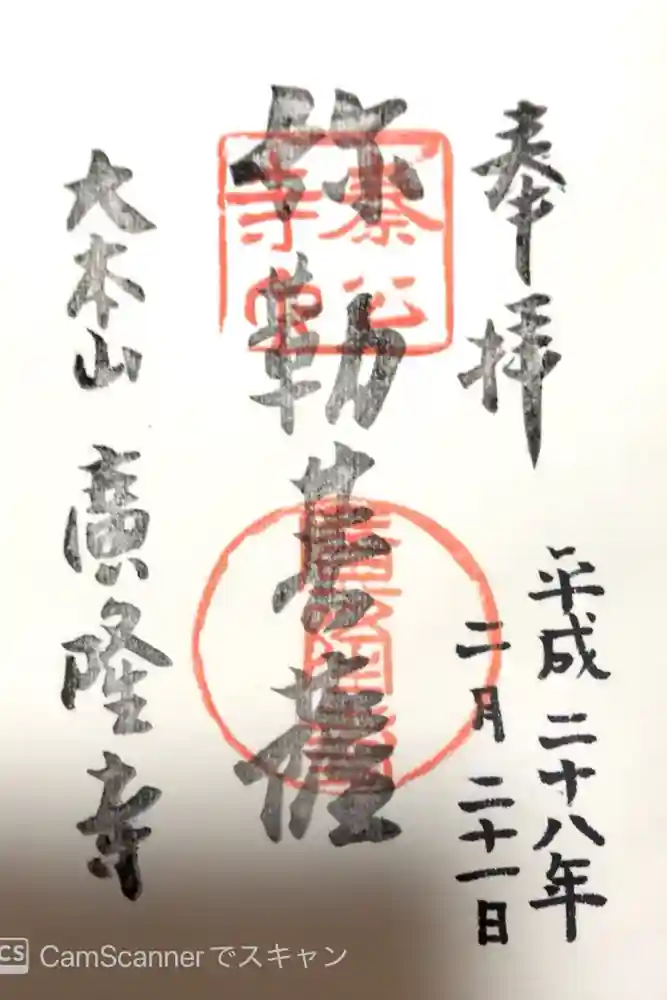 奉拝
平成二十八年
二月二十一日
弥勒菩薩
大本山 廣隆寺
秦公寺
CS CamScannerでスキャン